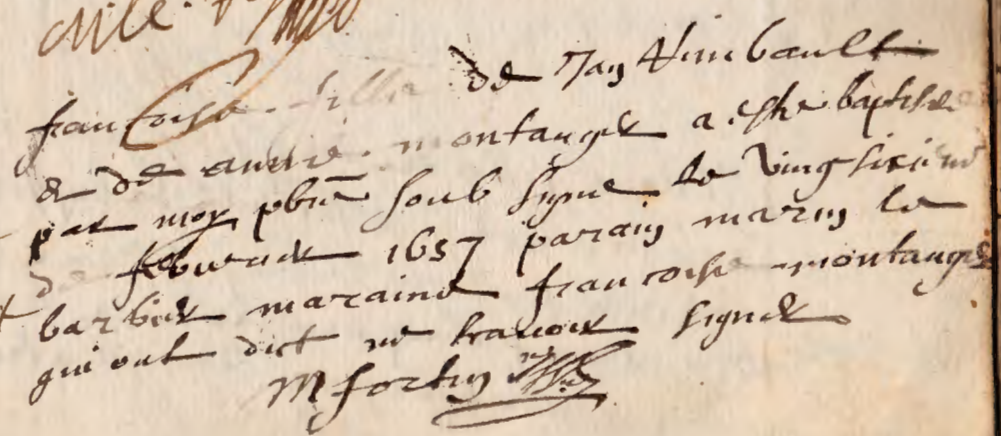 francoise fille de Jan Rimbault
et de andree montanger a este baptisee
par moy pbre soub signe le vingsixieme
de febvrier 1657 parain marin le
barbier maraine francoise montanger
qui ont dict ne scavoir signer
M fortin